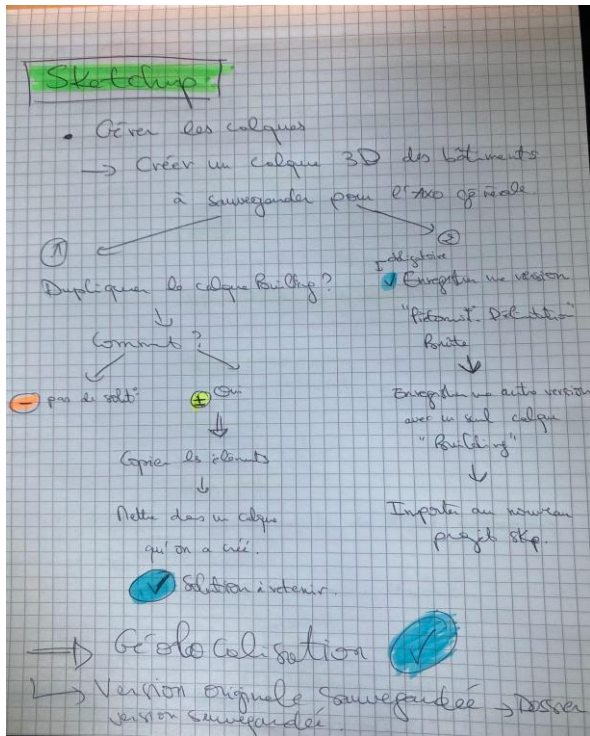 Sketchup
• Gérer les calques
→ Créer un calque 3D des bâtiments
à sauvegarder pour l'axo générale
①
Dupliquer le calque Building ?
↓
Comment ?
- pas de solt°
± Oui
↓
Copier les éléments
↓
Mettre dans un calque
qu'on a créé.
✓ Solution à retenir.
②
obligatoire
✓ Enregistrer une version
Brute
↓
Enregistrer une autre version
avec un seul calque
"Building"
↓
Importer au nouveau
projet skp.
⇒ Géolocalisation ✓
↳ Version originale sauvegardée → Dossier
version sauvegardée.